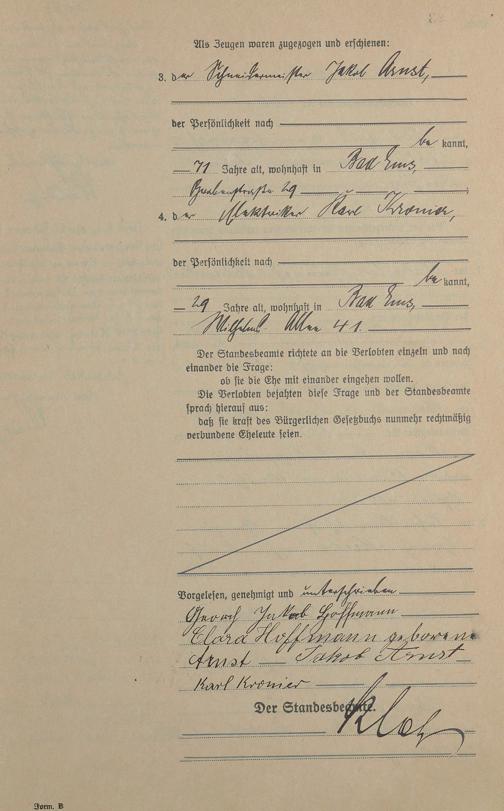 Als Zeugen waren zugezogen und erschienen:
3. der Schneidermeister Jakob Arnst,
der Persönlichkeit nach
be kannt,
71 Jahre alt, wohnhaft in Bad Ems,
Grabenstraße 29
4. der Elektriker Karl Kronier,
der Persönlichkeit nach
be kannt,
29 Jahre alt, wohnhaft in Bad Ems,
Wilhelms Allee 41.
Der Standesbeamte richtete an die Verlobten einzeln und nach
einander die Frage:
ob sie die Ehe mit einander eingehen wollen.
Die Verlobten bejahten diese Frage und der Standesbeamte
sprach hierauf aus:
daß sie kraft des Bürgerlichen Gesetzbuchs nunmehr rechtmäßig
verbundene Eheleute seien.
Vorgelesen, genehmigt und unterschrieben
Georg Jakob Hoffmann
Clara Hoffmann geborene
Arnst Jakob Arnst
Karl Kronier
Der Standesbeamte.
Form. B